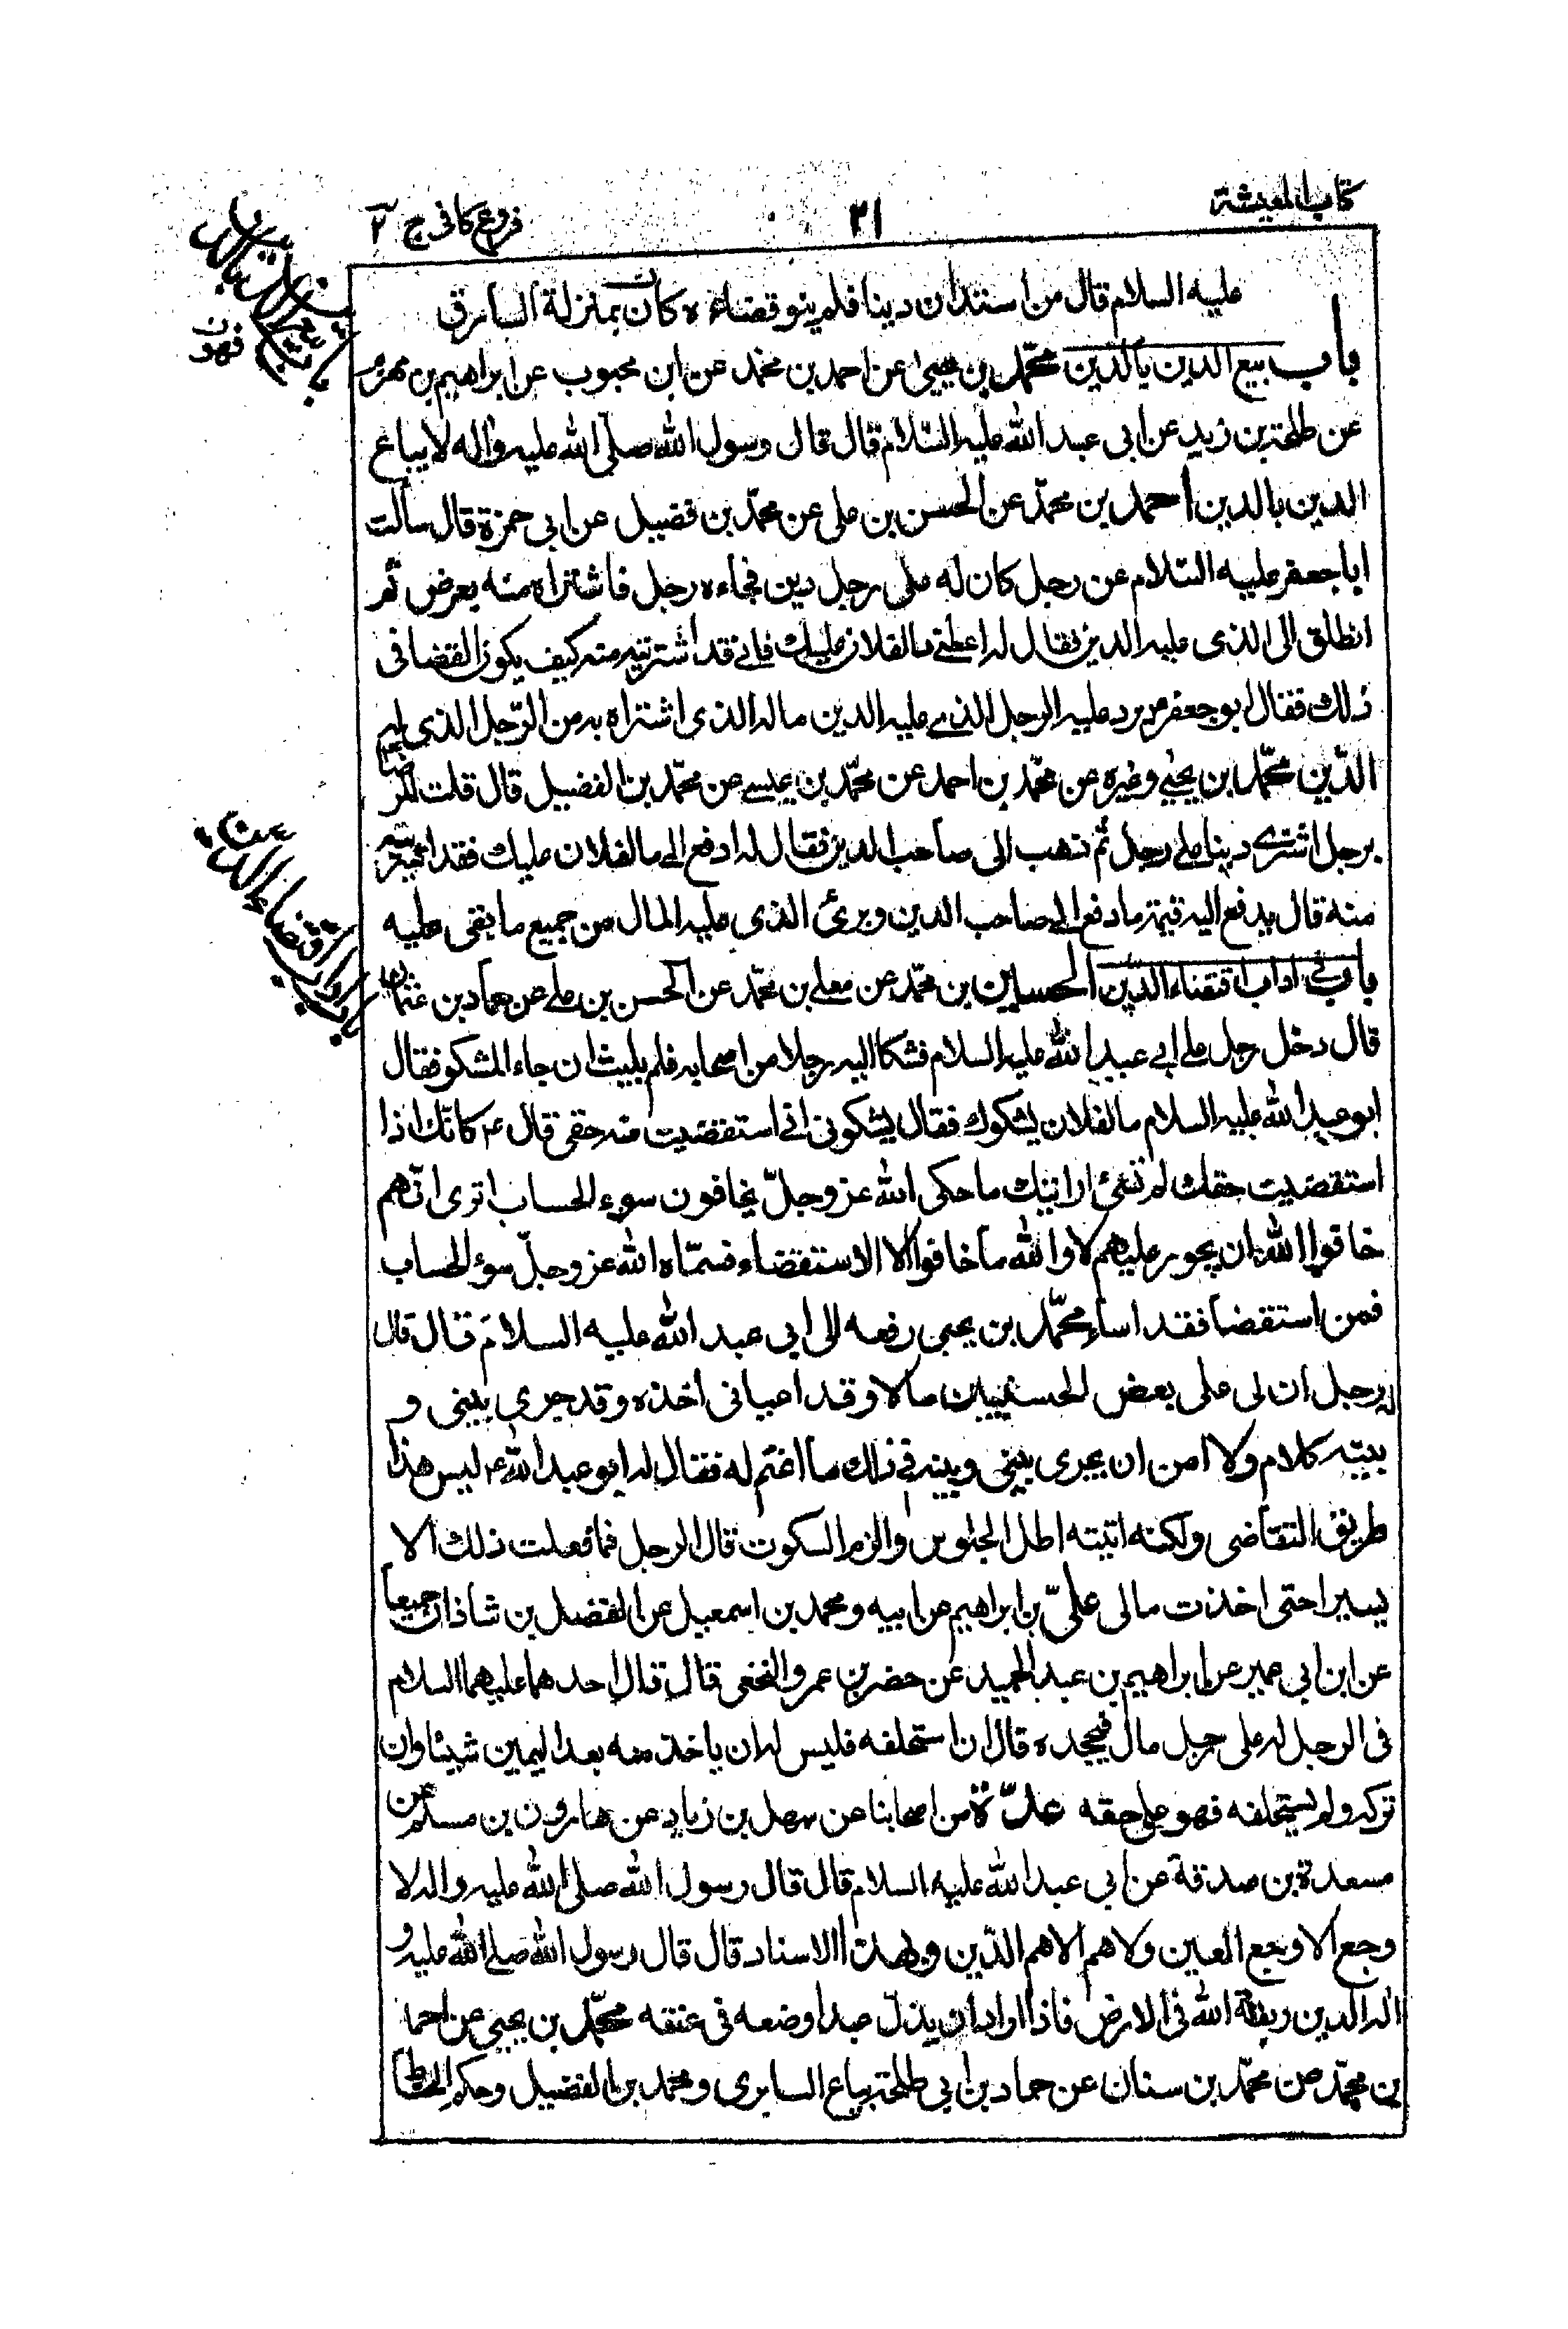 كتاب المعيشة
٣١
فروع كافى ج ٢
عليه السلام قال من استدان دينا فلم ينو قضاءه كان بمنزلة السارق
باب بيع الدين بالدين محمّد بن يحيى عن احمد بن محمّد عن ابن محبوب عن ابراهيم بن مهزم
عن طلحة بن زيد عن ابى عبد الله عليه السّلام قال قال رسول الله صلّى الله عليه واله لا يباع
الدين بالدين احمد بن محمّد عن الحسن بن على عن محمّد بن فضيل عن ابى حمزة قال سألت
ابا جعفر عليه السّلام عن رجل كان له على رجل دين فجاءه رجل فاشتراه منه بعرض ثم
انطلق الى الذى عليه الدين فقال له اعطنى ما لفلان عليك فانى قد اشتريته منه كيف يكون القضا فى
ذلك فقال ابو جعفر ع يرد عليه الرجل الذى عليه الدين ماله الذى اشتراه به من الرّجل الذى له
الدّين محمّد بن يحيى وغيره عن محمّد بن احمد عن محمّد بن عيسى عن محمّد بن الفضيل قال قلت للرضا
رجل اشترى دينا على رجل ثم ذهب الى صاحب الدين فقال له ادفع الى ما لفلان عليك فقد اشتريته
منه قال يدفع اليه قيمة ما دفع الى صاحب الدين وبرئ الذى عليه المال من جميع ما بقى عليه
باب فى اداب اقتضاء الدّين الحسين بن محمّد عن معلى بن محمّد عن الحسن بن على عن حماد بن عثمان
قال دخل رجل على ابى عبد الله عليه السلام فشكا اليه رجلا من اصحابه فلم يلبث ان جاء المشكو فقال
ابو عبد الله عليه السلام ما لفلان يشكوك فقال يشكونى انى استقضيت منه حقى قال ع كانّك اذا
استقضيت حقك لم تسئ ارايتك ما حكى الله عز وجلّ يخافون سوء الحساب اترى انّهم
خافوا الله ان يجور عليهم لا والله ما خافوا الا الاستقضاء فسمّاه الله عز وجلّ سوء الحساب
فمن استقضا فقد اساء محمّد بن يحيى رفعه الى ابى عبد الله عليه السلام قال قال
له رجل ان لى على بعض الحسنيين مالا وقد اعيانى اخذه وقد جرى بينى و
بينه كلام ولا امن ان يجرى بينى وبينه فى ذلك ما اغتم له فقال له ابو عبد الله ع ليس هذا
طريق التقاضى ولكنه اتيته اطل الجلوس والزم السكوت قال الرجل فما فعلت ذلك الا
يسيرا حتى اخذت مالى علىّ بن ابراهيم عن ابيه ومحمد بن اسمعيل عن الفضل بن شاذان جميعا
عن ابن ابى عمير عن ابراهيم بن عبد الحميد عن خضر بن عمرو النخعى قال قال احدهما عليهما السلام
فى الرجل له على رجل مال فيجحده قال ان استحلفه فليس له ان ياخذ منه بعد اليمين شيئا وان
تركه ولم يستحلفه فهو على حقه عدّة من اصحابنا عن سهل بن زياد عن هارون بن مسلم عن
مسعدة بن صدقة عن ابى عبد الله عليه السلام قال قال رسول الله صلى الله عليه واله لا
وجع الا وجع العين ولا هم الا هم الدّين وبهذا الاسناد قال قال رسول الله صلى الله عليه و
اله الدين ربقة الله فى الارض فاذا اراد ان يذل عبدا وضعه فى عنقه محمّد بن يحيى عن احمد
بن محمّد عن محمّد بن سنان عن حماد بن ابى طلحة بياع السابرى ومحمد بن الفضيل وحكم الحناط